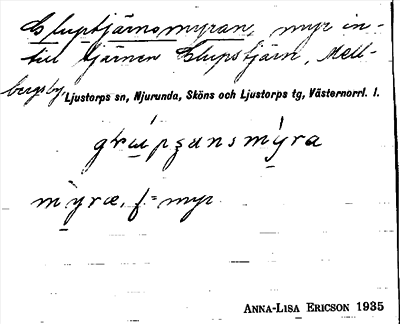 Gluptjärnsmyran, myr in-
till tjärnen Glupstjärn, Mell-
bergsby,
Ljustorps sn, Njurunda, Sköns och Ljustorps tg, Västernorrl. l.
myræ, f = myr
ANNA-LISA ERICSON 1935